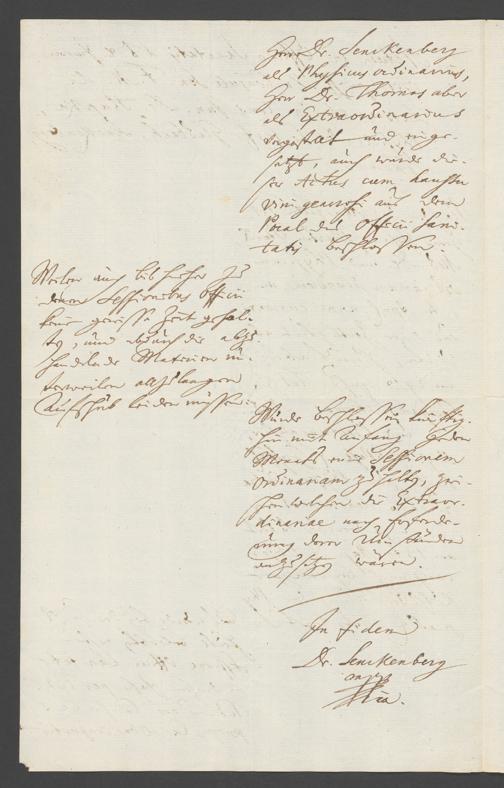 Herr Dr. Senckenberg
als Physicus ordinarius,
Herr Dr. Thomas aber
als Extraordinarius
vorgestellt und einge-
setzt, auch wurde die-
ser Actus cum haustu
vini generosi aus dem
Pocal des Officii Sani-
tatis beschlossen.
Weilen auch bis hieher zu
denen Sessionibus Officii
keine gewisse Zeit gehal-
ten, und dadurch die abzu
handelnde Materien un-
terweilen allzulangen
Aufschub leiden müssen
Wurde beschlossen künftig-
hin mit Anfang jeden
Monats eine Sessionem
ordinariam zu halten, zwi-
schen welchen die Extraor-
dinariae nach Erforde-
rung derer Umständen
anzusetzen wären.
In fidem
Dr. Senckenberg